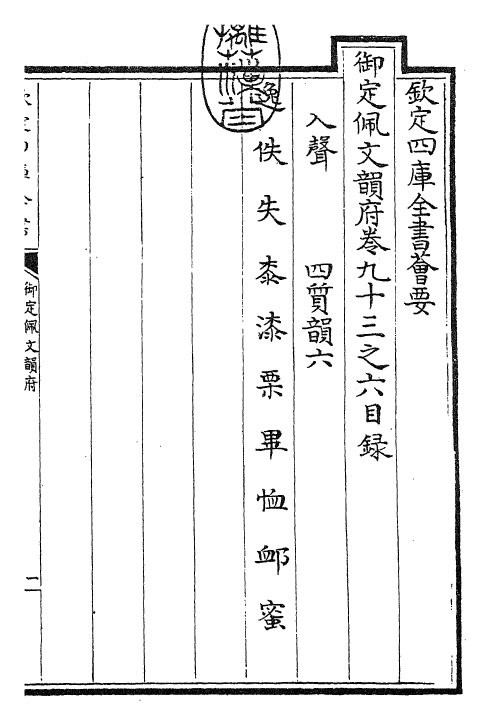 欽定四庫全書薈要
御定佩文韻府卷九十三之六目録
入聲
四質韻六
逸佚失桼漆栗畢恤卹蜜
御定佩文韻府